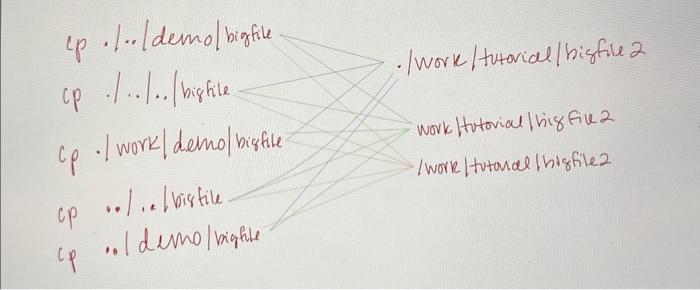 cp ./../demo/bigfile
cp ./../../bigfile
cp ./work/demo/bigfile
cp ../../bigfile
cp ../demo/bigfile
./work/tutorial/bigfile2
work/tutorial/bigfile2
/work/tutorial/bigfile2